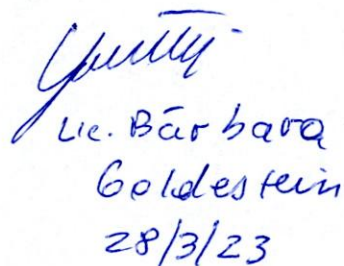 Lic. Bárbara
Goldestein
28/3/23